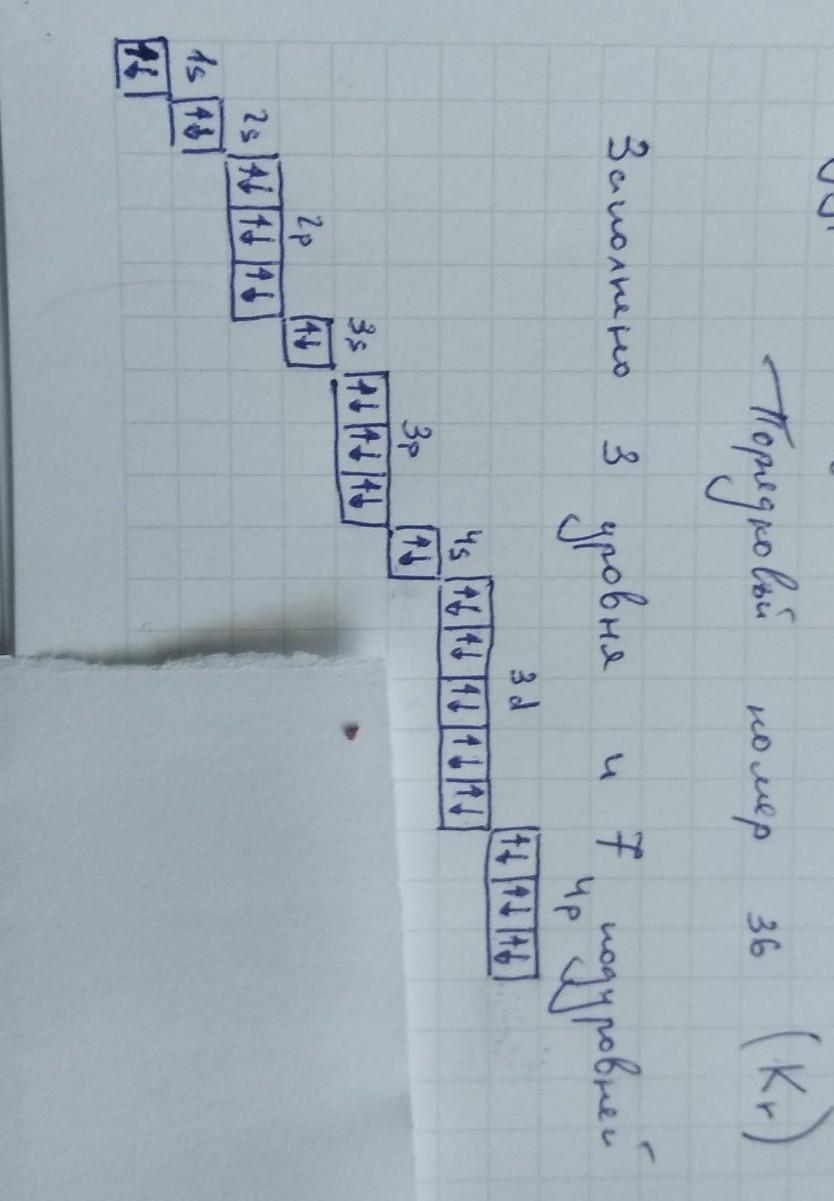 Порядковый номер 36 (Kr)
Заполнено 3 уровня и 7 подуровней
4p
3d
4s
3p
3s
2p
2s
1s